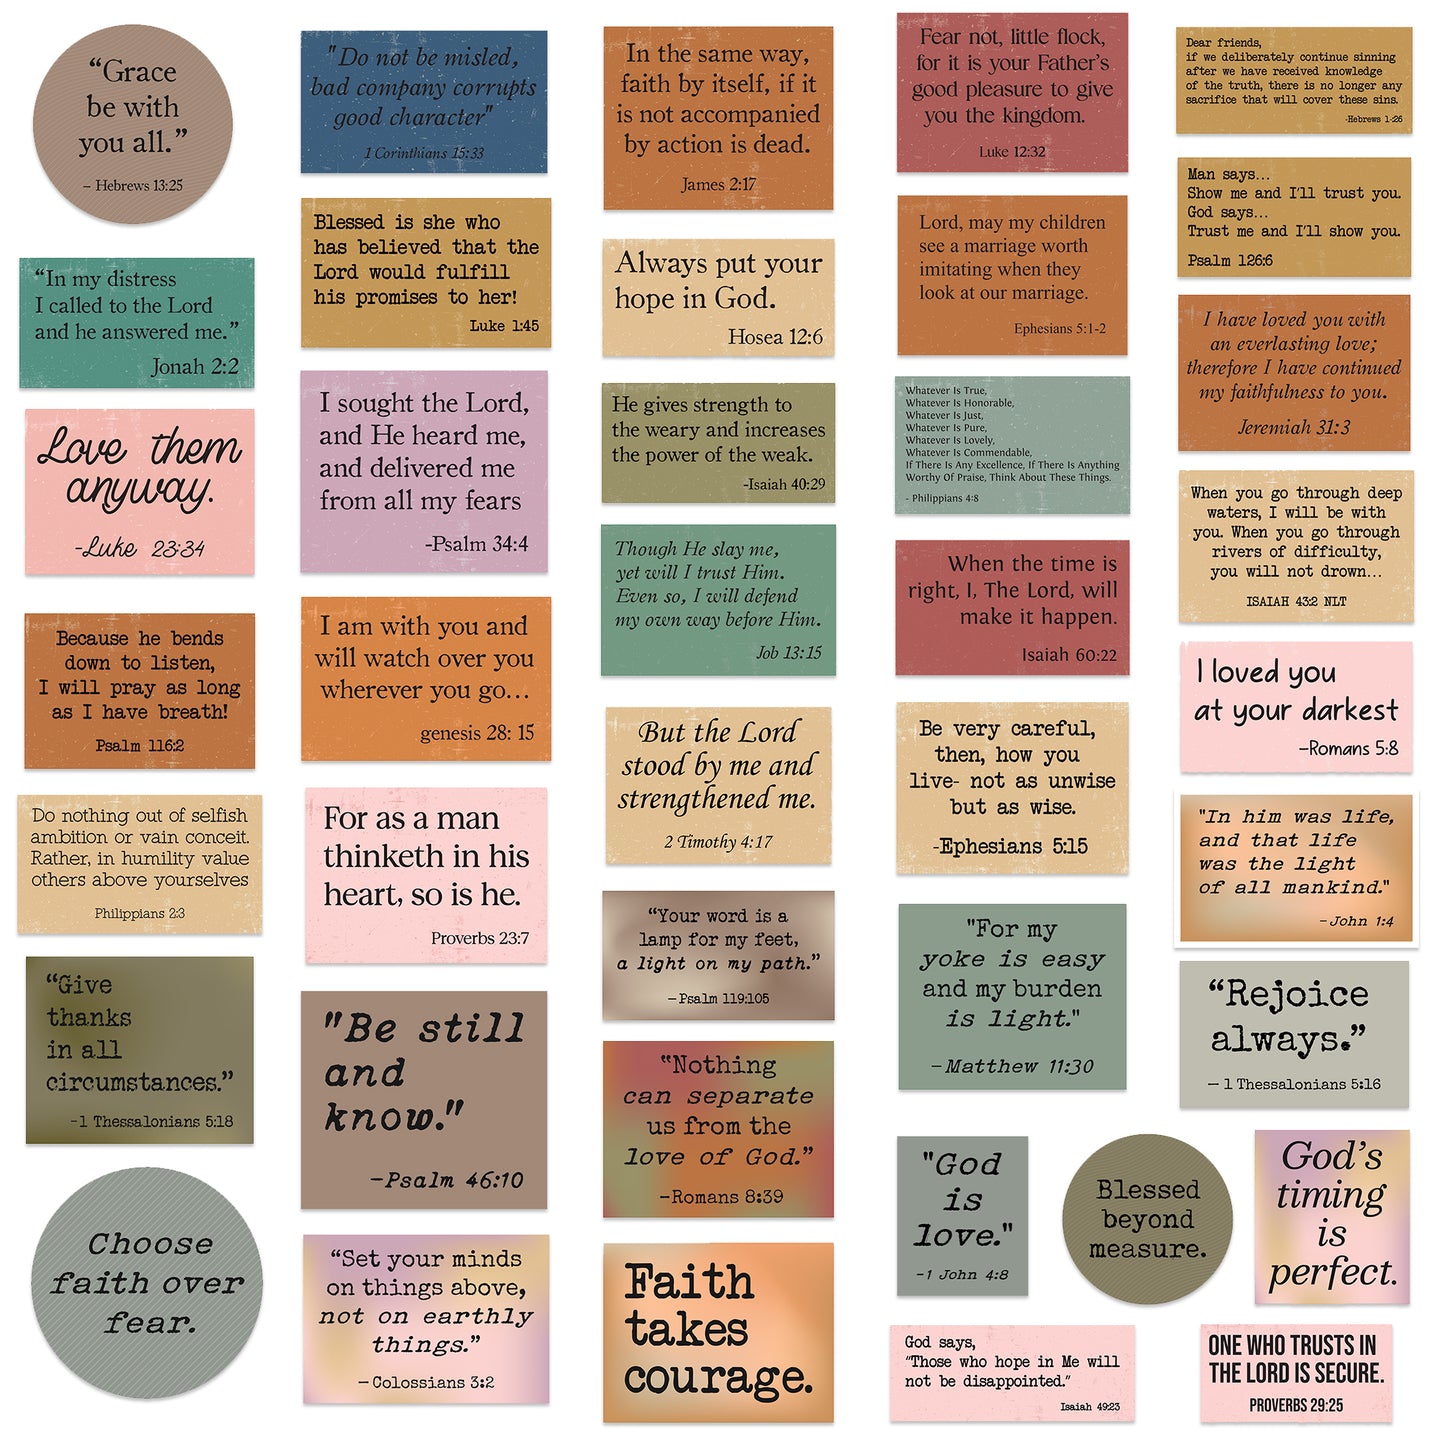 “Grace
be with
you all.”
– Hebrews 13:25
“In my distress
I called to the Lord
and he answered me.”
Jonah 2:2
Love them
anyway.
-Luke 23:34
Because he bends
down to listen,
I will pray as long
as I have breath!
Psalm 116:2
Do nothing out of selfish
ambition or vain conceit.
Rather, in humility value
others above yourselves
Philippians 2:3
“Give
thanks
in all
circumstances.”
-1 Thessalonians 5:18
Choose
faith over
fear.
"Do not be misled,
bad company corrupts
good character"
1 Corinthians 15:33
Blessed is she who
has believed that the
Lord would fulfill
his promises to her!
Luke 1:45
I sought the Lord,
and He heard me,
and delivered me
from all my fears
-Psalm 34:4
I am with you and
will watch over you
wherever you go...
genesis 28: 15
For as a man
thinketh in his
heart, so is he.
Proverbs 23:7
"Be still
and
know."
–Psalm 46:10
“Set your minds
on things above,
not on earthly
things.”
– Colossians 3:2
In the same way,
faith by itself, if it
is not accompanied
by action is dead.
James 2:17
Always put your
hope in God.
Hosea 12:6
He gives strength to
the weary and increases
the power of the weak.
-Isaiah 40:29
Though He slay me,
yet will I trust Him.
Even so, I will defend
my own way before Him.
Job 13:15
But the Lord
stood by me and
strengthened me.
2 Timothy 4:17
“Your word is a
lamp for my feet,
a light on my path.”
– Psalm 119:105
“Nothing
can separate
us from the
love of God.”
–Romans 8:39
Faith
takes
courage.
Fear not, little flock,
for it is your Father’s
good pleasure to give
you the kingdom.
Luke 12:32
Lord, may my children
see a marriage worth
imitating when they
look at our marriage.
Ephesians 5:1-2
Whatever Is True,
Whatever Is Honorable,
Whatever Is Just,
Whatever Is Pure,
Whatever Is Lovely,
Whatever Is Commendable,
If There Is Any Excellence, If There Is Anything
Worthy Of Praise, Think About These Things.
- Philippians 4:8
When the time is
right, I, The Lord, will
make it happen.
Isaiah 60:22
Be very careful,
then, how you
live- not as unwise
but as wise.
-Ephesians 5:15
"For my
yoke is easy
and my burden
is light."
– Matthew 11:30
"God
is
love."
–1 John 4:8
Blessed
beyond
measure.
God’s
timing
is
perfect.
God says,
"Those who hope in Me will
not be disappointed."
Isaiah 49:23
Dear friends,
if we deliberately continue sinning
after we have received knowledge
of the truth, there is no longer any
sacrifice that will cover these sins.
-Hebrews 1-26
Man says...
Show me and I'll trust you.
God says...
Trust me and I'll show you.
Psalm 126:6
I have loved you with
an everlasting love;
therefore I have continued
my faithfulness to you.
Jeremiah 31:3
When you go through deep
waters, I will be with
you. When you go through
rivers of difficulty,
you will not drown...
ISAIAH 43:2 NLT
I loved you
at your darkest
–Romans 5:8
"In him was life,
and that life
was the light
of all mankind."
– John 1:4
“Rejoice
always.”
– 1 Thessalonians 5:16
ONE WHO TRUSTS IN
THE LORD IS SECURE.
PROVERBS 29:25